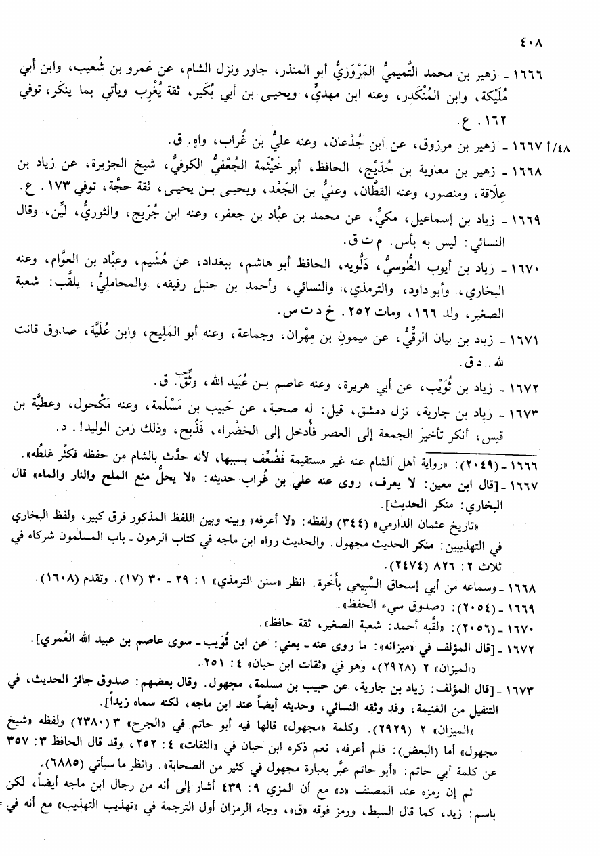 ٤٠٨
١٦٦٦ - زهير بن محمد التَّميميُّ المَرْوَزيُّ أبو المنذر، جاور ونزل الشام، عن عَمرو بن شُعيب، وابن أبي
مُلَيكة، وابن المُنْكَدر، وعنه ابن مهديّ، ويحيى بن أبي بُكَير، ثقة يُغْرِب ويأتي بما ينكر، توفي
١٦٢. ع.
٤٨/أ ١٦٦٧ - زهير بن مرزوق، عن ابن جُدْعان، وعنه عليُّ بن غُراب، واهٍ. ق.
١٦٦٨ - زهير بن معاوية بن حُدَيْج، الحافظ، أبو خَيْثَمة الجُعْفيُّ الكوفيُّ، شيخ الجزيرة، عن زياد بن
عِلاقة، ومنصور، وعنه القطَّان، وعليُّ بن الجَعْد، ويحيى بن يحيى، ثقة حجَّة، توفي ١٧٣. ع.
١٦٦٩ - زياد بن إسماعيل، مكيّ، عن محمد بن عبَّاد بن جعفر، وعنه ابن جُرَيج، والثوريُّ، ليّن، وقال
النسائي: ليس به بأس. م ت ق.
١٦٧٠ - زياد بن أيوب الطُّوسيُّ، دَلُّويه، الحافظ أبو هاشم، ببغداد، عن هُشَيم، وعبَّاد بن العوَّام، وعنه
البخاري، وأبو داود، والترمذي، والنسائي، وأحمد بن حنبل رفيقه، والمحامليُّ، يلقَّب: شعبة
الصغير، ولد ١٦٦، ومات ٢٥٢. خ د ت س.
١٦٧١ - زياد بن بيان الرقِّيُّ، عن ميمون بن مِهْران، وجماعة، وعنه أبو المَليح، وابن عُلَيَّة، صدوق قانت
لله. د ق.
١٦٧٢ - زياد بن ثُوَيْب، عن أبي هريرة، وعنه عاصم بن عُبيد الله، وثِّق. ق.
١٦٧٣ - زياد بن جارية، نزل دمشق، قيل: له صحبة، عن حَبيب بن مَسْلَمة، وعنه مَكْحول، وعطيَّة بن
قيس، أنكر تأخيرَ الجمعة إلى العصر فأُدخل إلى الخضراء، فَذُبح، وذلك زمن الوليد!. د.
١٦٦٦ - (٢٠٤٩): «رواية أهل الشام عنه غير مستقيمة فَضُعِّف بسببها، لأنه حدَّث بالشام من حفظه فكثُر غلطُه».
١٦٦٧ - [قال ابن معين: لا يعرف، روى عنه علي بن غراب حديثه: «لا يحلُّ منع الملح والنار والماء» قال
البخاري: منكر الحديث].
«تاريخ عثمان الدارمي» (٣٤٤) ولفظه: «لا أعرفه» وبينه وبين اللفظ المذكور فرق كبير، ولفظ البخاري
في التهذيبين: منكر الحديث مجهول. والحديث رواه ابن ماجه في كتاب الرهون - باب المسلمون شركاء في
ثلاث ٢: ٨٢٦ (٢٤٧٤).
١٦٦٨ - وسماعه من أبي إسحاق السَّبيعي بأَخَرة. انظر «سنن الترمذي» ١: ٢٩ - ٣٠ (١٧). وتقدم (١٦٠٨).
١٦٦٩ - (٢٠٥٤): «صدوق سيء الحفظ».
١٦٧٠ - (٢٠٥٦): «لقَّبه أحمد: شعبة الصغير، ثقة حافظ».
١٦٧٢ - [قال المؤلف في «ميزانه»: ما روى عنه - يعني: عن ابن ثُوَيب - سوى عاصم بن عبيد الله العُمري].
«الميزان» ٢ (٢٩٢٨)، وهو في «ثقات ابن حبان» ٤: ٢٥١.
١٦٧٣ - [قال المؤلف: زياد بن جارية، عن حبيب بن مسلمة، مجهول. وقال بعضهم: صدوق جائز الحديث، في
التنفيل من الغنيمة، وقد وثقه النسائي، وحديثه أيضاً عند ابن ماجه، لكنه سماه زيداً].
«الميزان» ٢ (٢٩٢٩). وكلمة «مجهول» قالها فيه أبو حاتم في «الجرح» ٣ (٢٣٨٠) ولفظه «شيخ
مجهول» أما (البعض): فلم أعرفه، نعم ذكره ابن حبان في «الثقات» ٤: ٢٥٢، وقد قال الحافظ ٣: ٣٥٧
عن كلمة أبي حاتم: «أبو حاتم عبَّر بعبارة مجهول في كثير من الصحابة». وانظر ما سيأتي (٦٨٨٥).
ثم إن رمزه عند المصنف «د» مع أن المزي ٩: ٤٣٩ أشار إلى أنه من رجال ابن ماجه أيضاً، لكن
باسم: زيد، كما قال السبط، ورمز فوقه «ق»، وجاء الرمزان أول الترجمة في «تهذيب التهذيب» مع أنه في